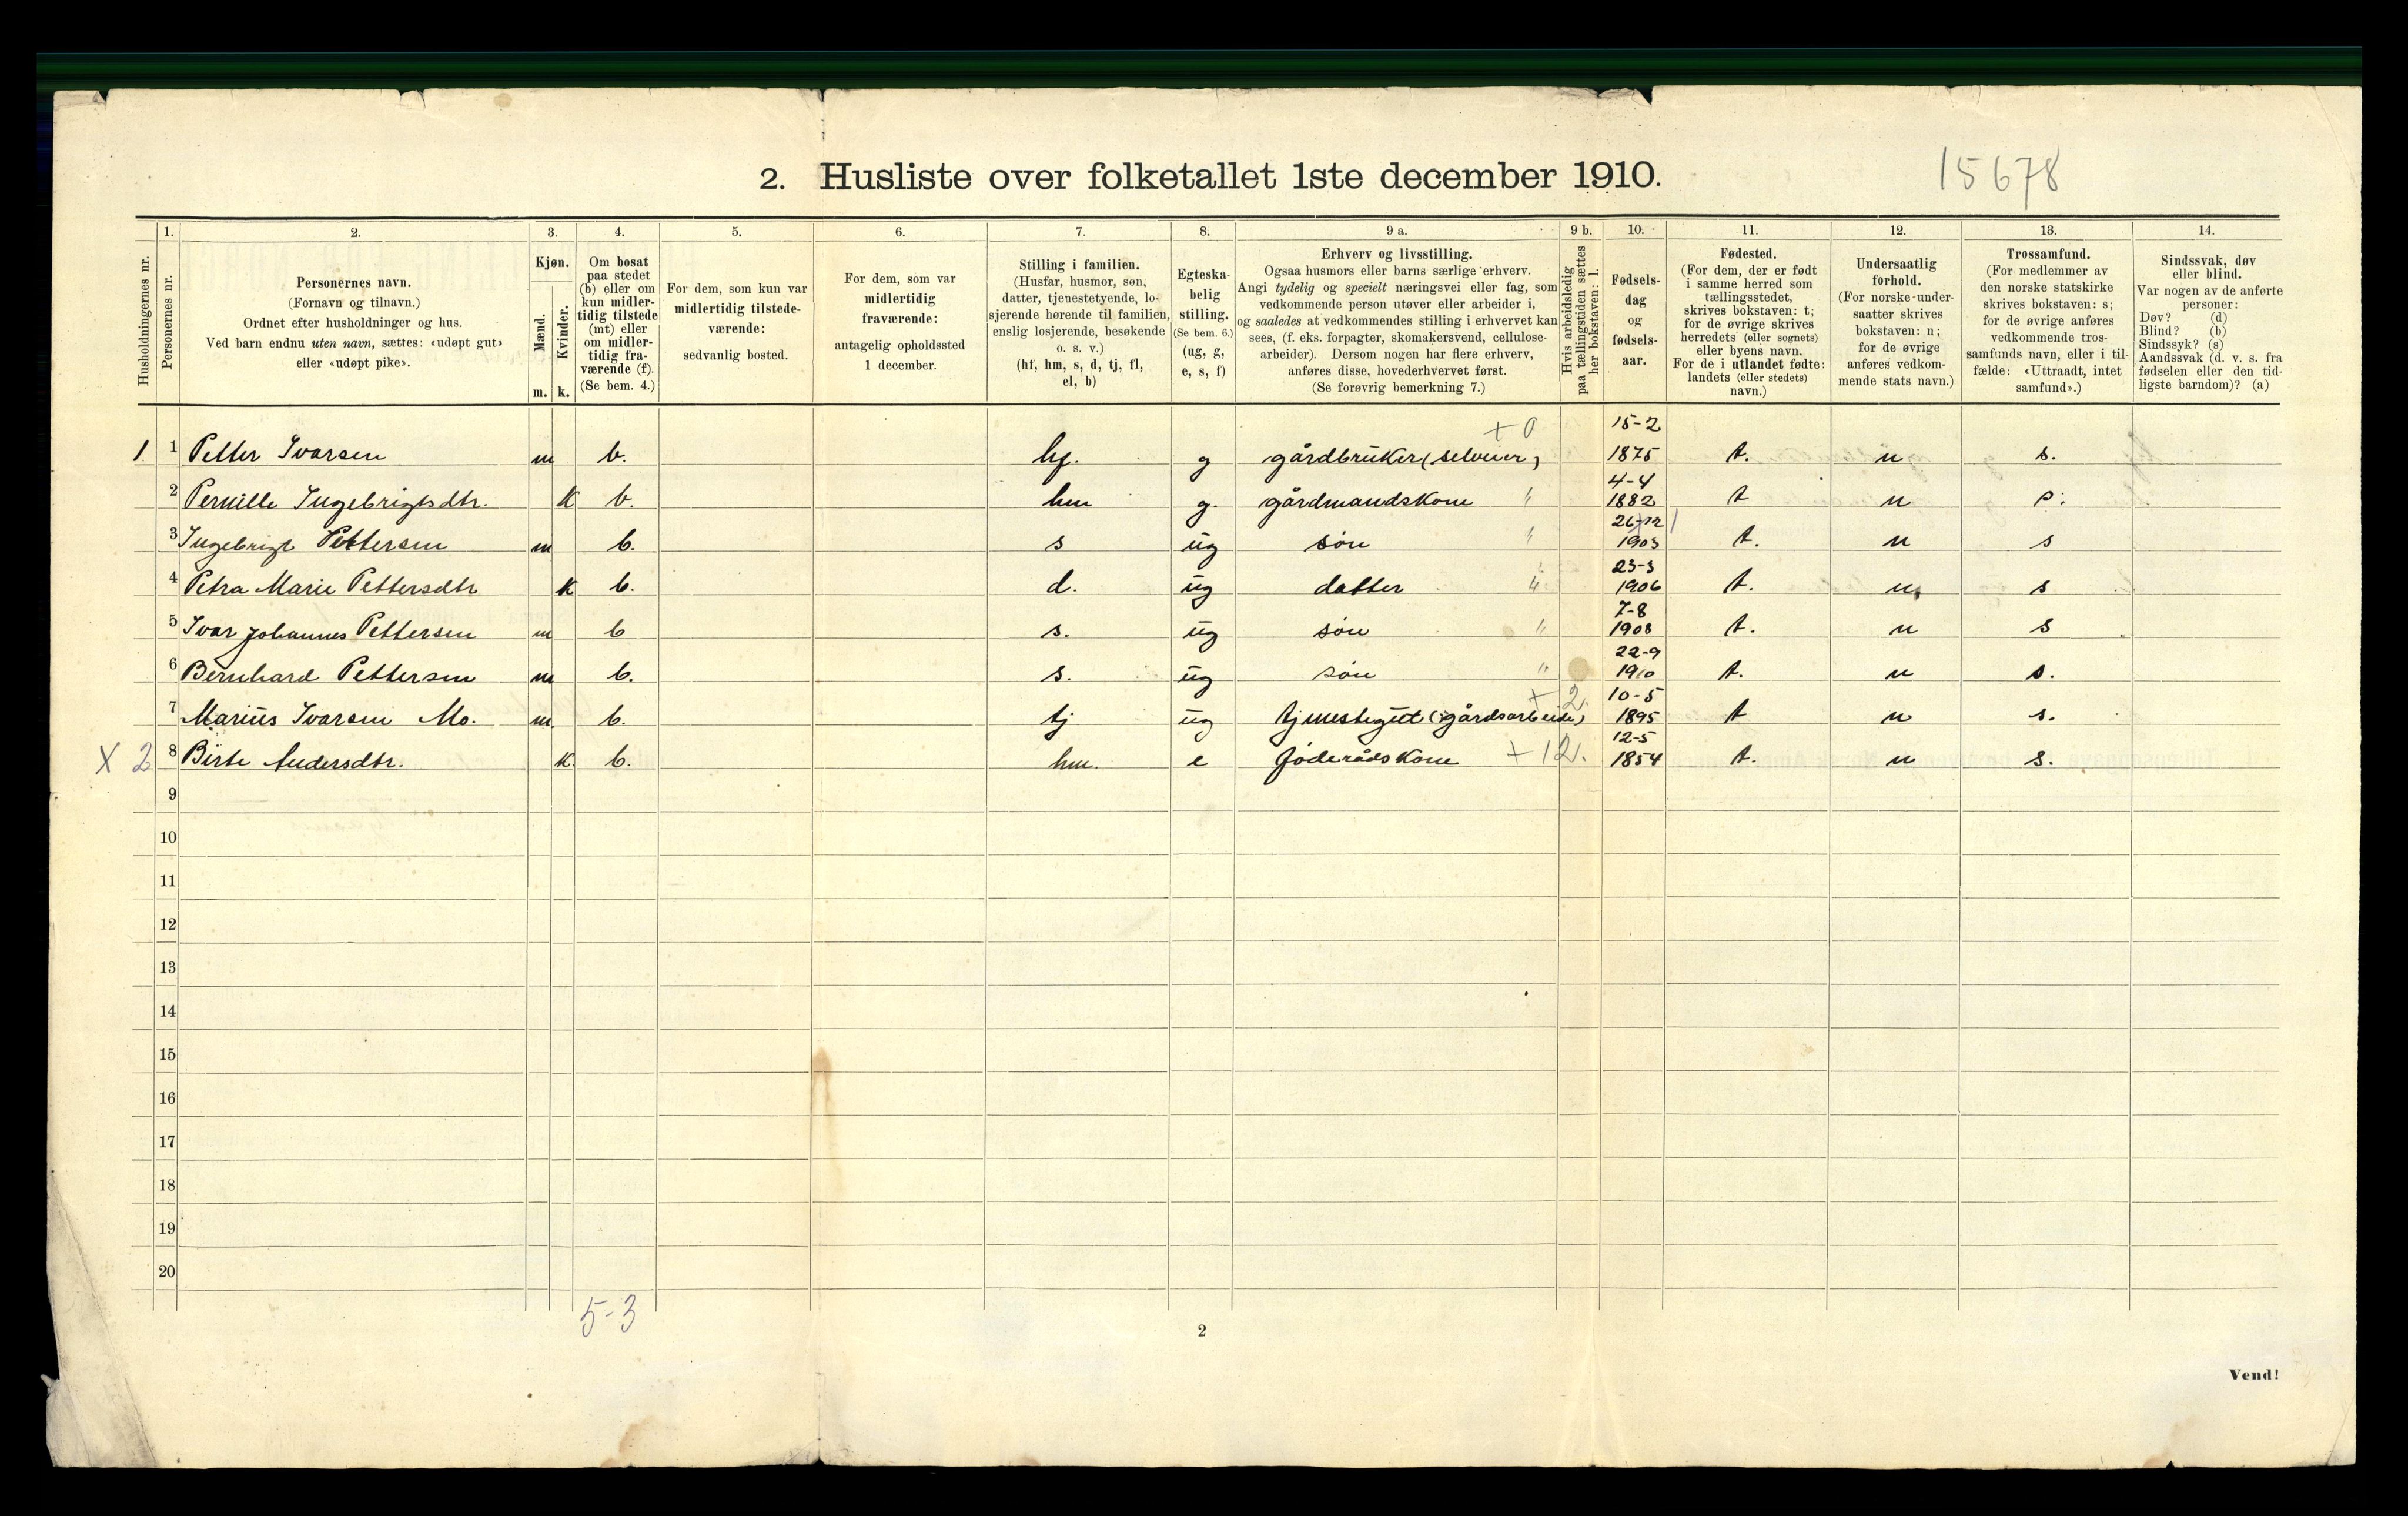 2. Husliste over folketallet 1ste december 1910.
15678
Husholdningernes nr.
1.
Personernes nr.
2.
Personernes navn.
(Fornavn og tilnavn.)
Ordnet efter husholdninger og hus.
Ved barn endnu uten navn, sættes: «udøpt gut»
eller «udøpt pike».
3.
Kjøn.
Mænd.
Kvinder.
m. k.
4.
Om bosat
paa stedet
(b) eller om
kun midler-
tidig tilstede
(mt) eller
om midler-
tidig fra-
værende (f).
(Se bem. 4.)
5.
For dem, som kun var
midlertidig tilstede-
værende:
sedvanlig bosted.
6.
For dem, som var
midlertidig
fraværende:
antagelig opholdssted
1 december.
7.
Stilling i familien.
(Husfar, husmor, søn,
datter, tjenestetyende, lo-
sjerende hørende til familien,
enslig losjerende, besøkende
o. s. v.)
(hf, hm, s, d, tj, fl,
el, b)
8.
Egteska-
belig
stilling.
(Se bem. 6.)
(ug, g,
e, s, f)
9 a.
Erhverv og livsstilling.
Ogsaa husmors eller barns særlige erhverv.
Angi tydelig og specielt næringsvei eller fag, som
vedkommende person utøver eller arbeider i,
og saaledes at vedkommendes stilling i erhvervet kan
sees, (f. eks. forpagter, skomakersvend, cellulose-
arbeider). Dersom nogen har flere erhverv,
anføres disse, hovederhvervet først.
(Se forøvrig bemerkning 7.)
9 b.
Hvis arbeidsledig
paa tællingstiden sættes
her bokstaven: l.
10.
Fødsels-
dag
og
fødsels-
aar.
11.
Fødested.
(For dem, der er født
i samme herred som
tællingsstedet,
skrives bokstaven: t;
for de øvrige skrives
herredets (eller sognets)
eller byens navn.
For de i utlandet fødte:
landets (eller stedets)
navn.)
12.
Undersaatlig
forhold.
(For norske under-
saatter skrives
bokstaven: n;
for de øvrige
anføres vedkom-
mende stats navn.)
13.
Trossamfund.
(For medlemmer av
den norske statskirke
skrives bokstaven: s;
for de øvrige anføres
vedkommende tros-
samfunds navn, eller i til-
fælde: «Uttraadt, intet
samfund».)
14.
Sindssvak, døv
eller blind.
Var nogen av de anførte
personer:
Døv? (d)
Blind? (b)
Sindssyk? (s)
Aandssvak (d. v. s. fra
fødselen eller den tid-
ligste barndom)? (a)
+ 0 15-2
1. 1 Petter Ivarsen m b. hf. g gårdbruker (selveier) 1875 t. n s.
4-4
2 Pernille Ingebrigtsdtr. k b. hm g. gårdmandskone " 1882 t n s.
26-12
3 Ingebrigt Pettersen m b. s ug søn " 1903 t. n s
23-3
4 Petra Marie Pettersdtr k b. d. ug datter " 1906 t. n s
7-8
5 Ivar Johannes Pettersen m b s. ug søn " 1908 t. n s
22-9
6 Bernhard Pettersen m b. s. ug søn " 1910 t. n s.
+ 2. 10-5
7 Marius Ivarsen Mo. m b. tj ug tjenestegut (gårdsarbeide) 1895 t n s.
12-5
X 2 8 Birte Andersdtr. k b. hm. e føderådskone + 12. 1854 t. n s.
9
10
11
12
13
14
15
16
17
18
19
20
5-3
2
Vend!